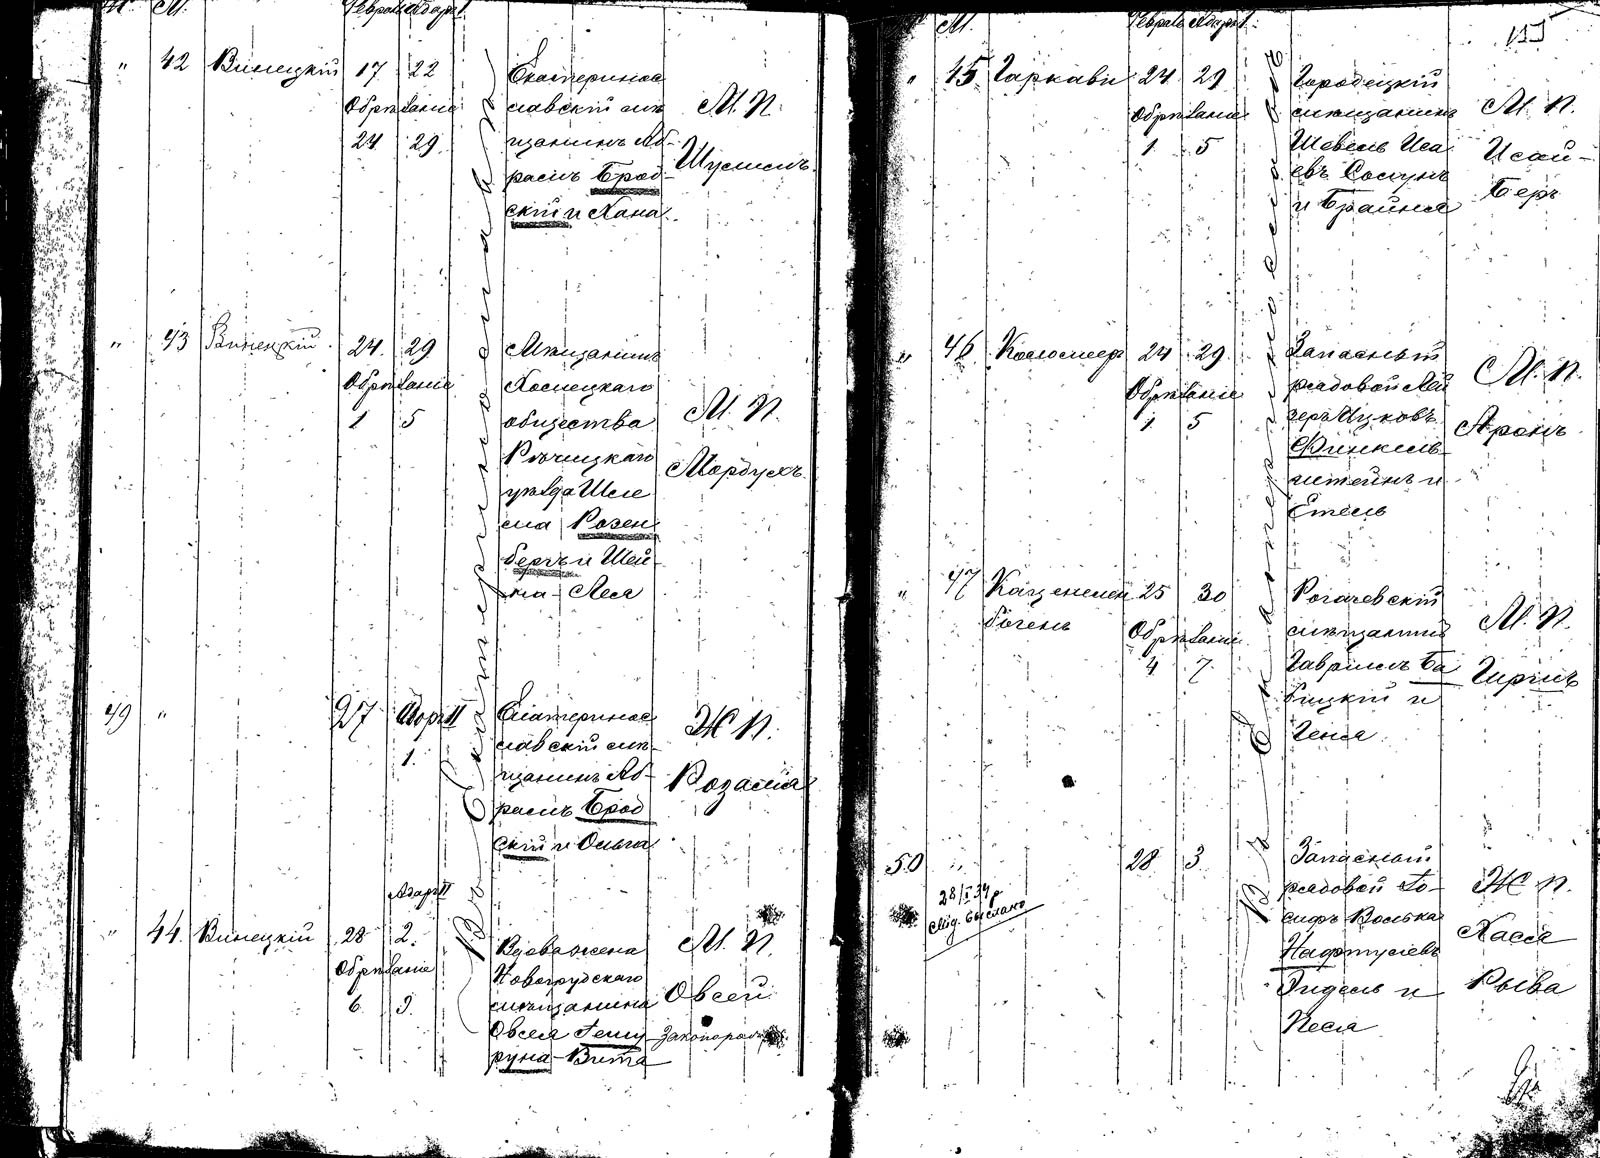 М.
" 42 Винецкій 17 22
Обрѣзаніе
24 29
Екатеринос
лавскій мѣ
щанинъ Аб-
рамъ Брод-
скій и Хана
М. П.
Шулимъ
" 43 Винецкій 24. 29
Обрѣзаніе
1 5
Мѣщанинъ
общества
Рѣчицкаго
уѣзда Шле
ма Розен
бергъ и Шей-
на-Леся
М. П.
Мордухъ
49 " 27 Адаръ II
1.
Екатеринос
лавскій мѣ-
щанинъ Аб-
рамъ Брод
скій и Ольга
Ж П.
Розалія
Адаръ II
" 44. Винецкій 28 2.
Обрѣзаніе
6 9.
Вдова жена
Новогрудскаго
мѣщанина
Овсея
руна - Вита
М. П.
Овсей
Въ Екатеринославѣ
М.
" 45 Гаркави 24 29
Обрѣзаніе
1 5
Городецкій
мѣщанинъ
Шевель Иса
евъ
и Брайна
М. П.
Исай-
Беръ
" 46 24 29
Обрѣзаніе
1 5
Запасный
рядовой Лей
зеръ Ицковъ
Финкель-
штейнъ и
Етель
М. П.
Аронъ
" 47 Каценелен
богенъ
25 30
Обрѣзаніе
4 7
Рогачевскій
мѣщанинъ
Гавріилъ Ба
бицкій и
Геня
М. П.
Гиршъ
50 " 28 3
28/I 39 г
выслано
Запасный
рядовой Іо-
сифъ Волька
Нафтулевъ
и
Песя
Ж П.
Хася
Рыва
Въ Екатеринославѣ